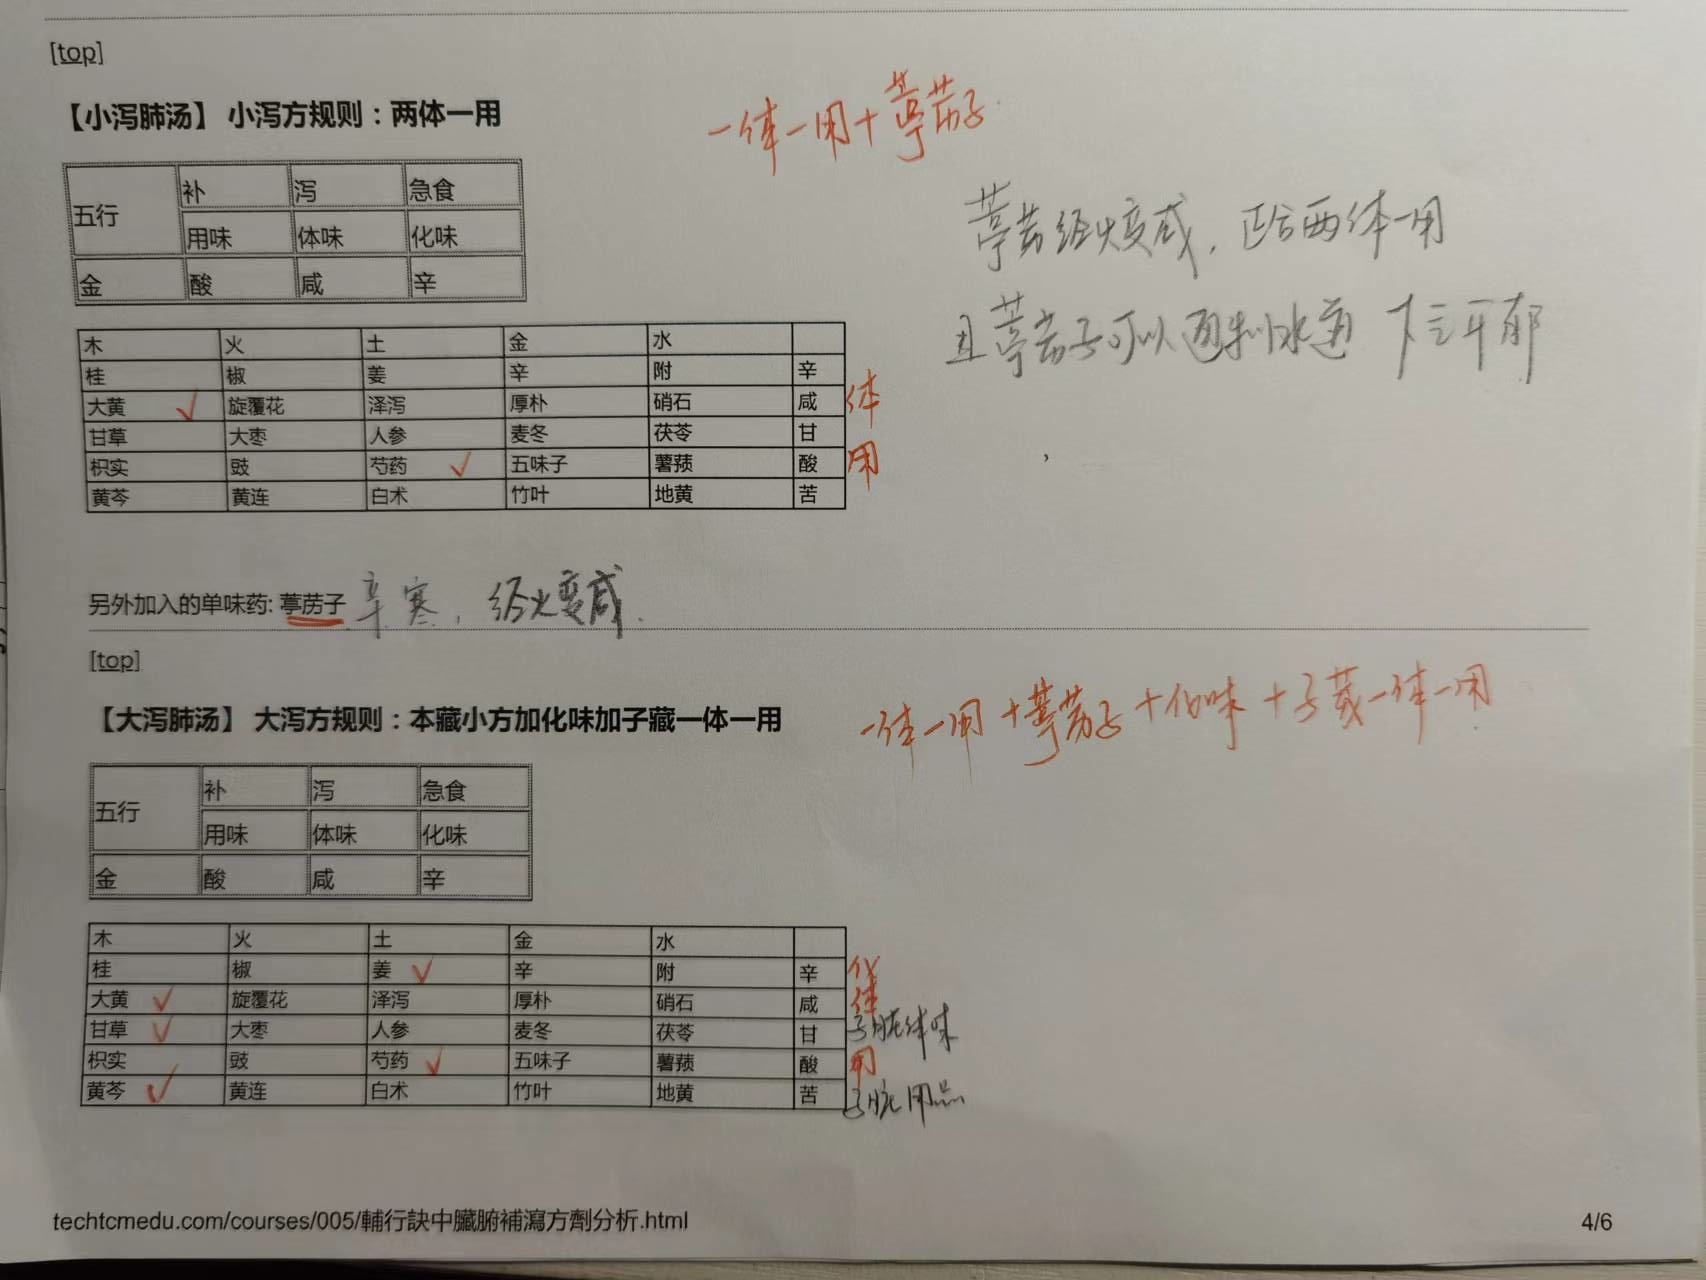 [top]
【小泻肺汤】 小泻方规则：两体一用
一体一用+葶苈子
五行 补 泻 急食
用味 体味 化味
金 酸 咸 辛
葶苈经火变咸，正合两体一用
且葶苈子可以通利水道
木 火 土 金 水
桂 椒 姜 辛 附 辛
大黄 ✓ 旋覆花 泽泻 厚朴 硝石 咸 体
甘草 大枣 人参 麦冬 茯苓 甘
枳实 豉 芍药 ✓ 五味子 薯蓣 酸 用
黄芩 黄连 白术 竹叶 地黄 苦
另外加入的单味药: 葶苈子 辛寒，经火变咸.
[top]
【大泻肺汤】 大泻方规则：本藏小方加化味加子藏一体一用
一体一用+葶苈子+化味+子藏一体一用
五行 补 泻 急食
用味 体味 化味
金 酸 咸 辛
木 火 土 金 水
桂 椒 姜 ✓ 辛 附 辛 化
大黄 ✓ 旋覆花 泽泻 厚朴 硝石 咸 体
甘草 ✓ 大枣 人参 麦冬 茯苓 甘 子脏体味
枳实 豉 芍药 ✓ 五味子 薯蓣 酸 用
黄芩 ✓ 黄连 白术 竹叶 地黄 苦 子脏用品
techtcmedu.com/courses/005/輔行訣中臟腑補瀉方劑分析.html
4/6